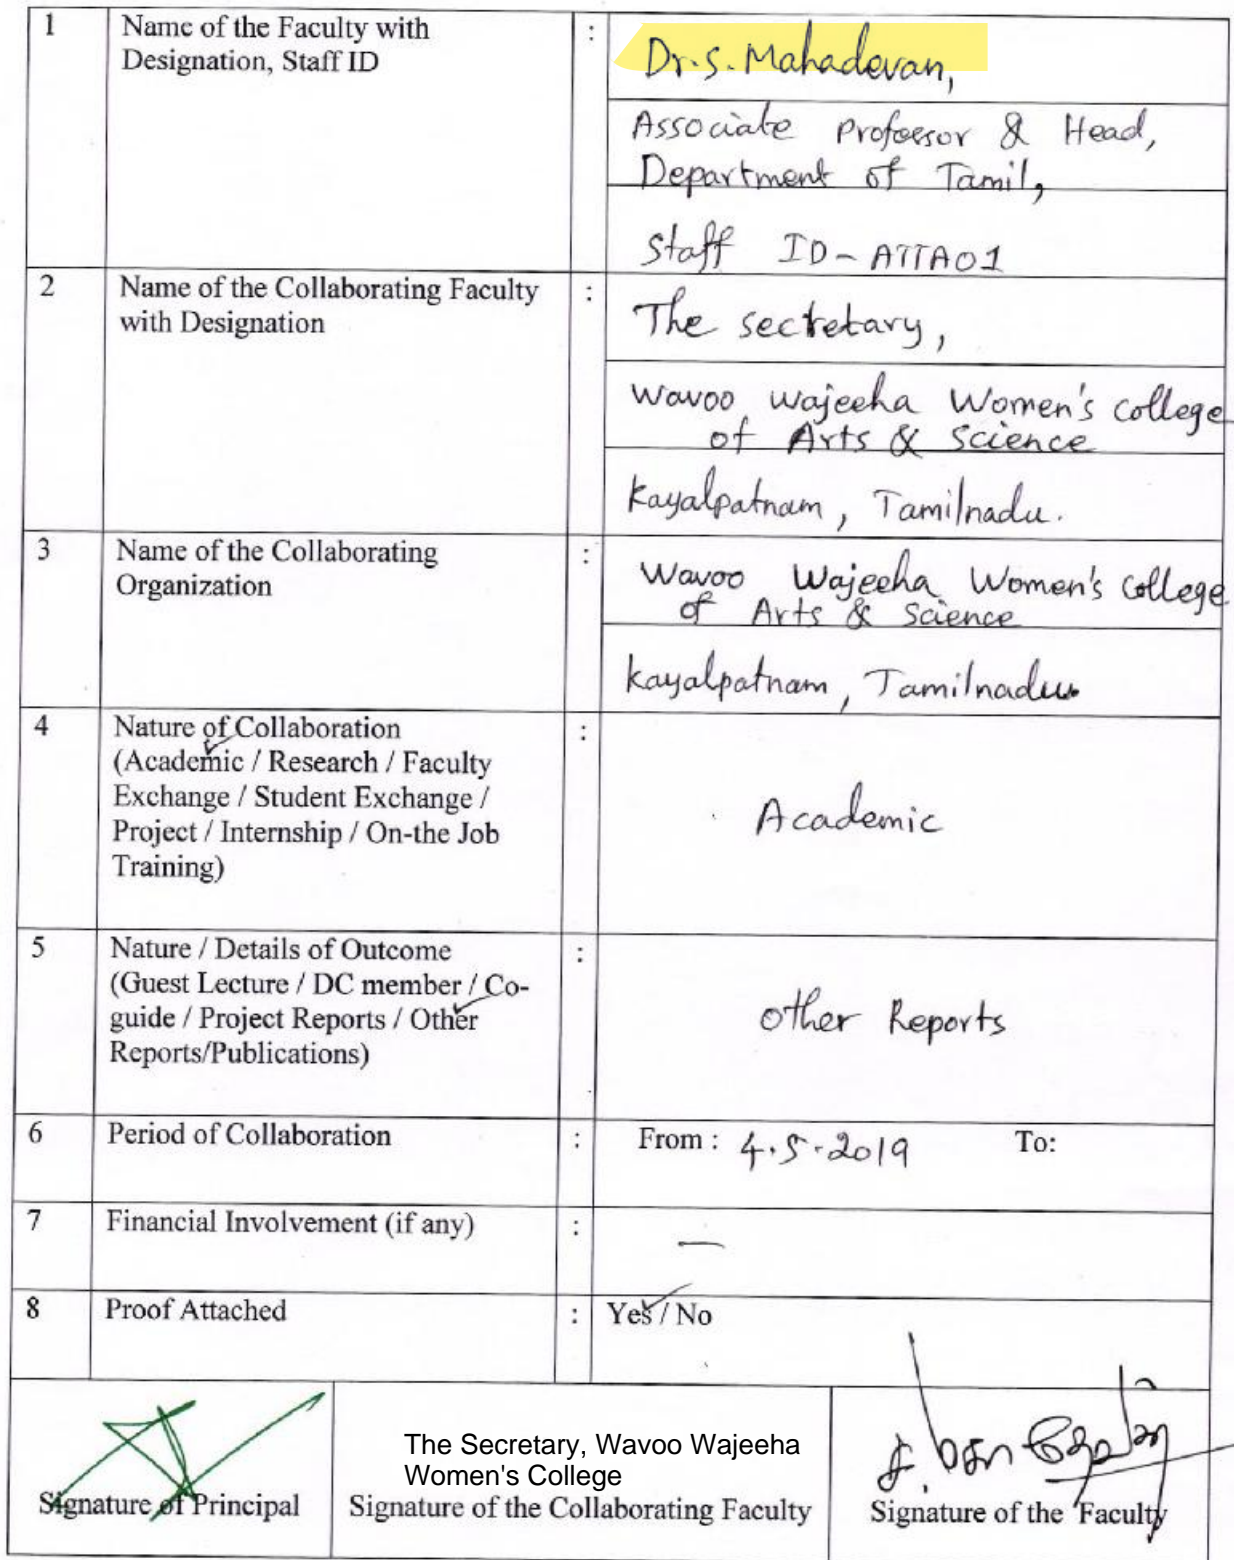 1 Name of the Faculty with : Dr.S.Mahadevan,
Designation, Staff ID
Associate Professor & Head,
Department of Tamil,
Staff ID-ATTA01
2 Name of the Collaborating Faculty : The secretary,
with Designation
Wavoo Wajeeha Women's college
of Arts & Science
Kayalpatnam, Tamilnadu.
3 Name of the Collaborating : Wavoo Wajeeha Women's College
Organization of Arts & Science
Kayalpatnam, Tamilnadu.
4 Nature of Collaboration :
(Academic / Research / Faculty
Exchange / Student Exchange /
Project / Internship / On-the Job
Training)
Academic
5 Nature / Details of Outcome :
(Guest Lecture / DC member / Co-
guide / Project Reports / Other
Reports/Publications)
other Reports
6 Period of Collaboration : From : 4.5.2019 To:
7 Financial Involvement (if any) : —
8 Proof Attached : Yes / No
Signature of Principal
The Secretary, Wavoo Wajeeha
Women's College
Signature of the Collaborating Faculty
Signature of the Faculty